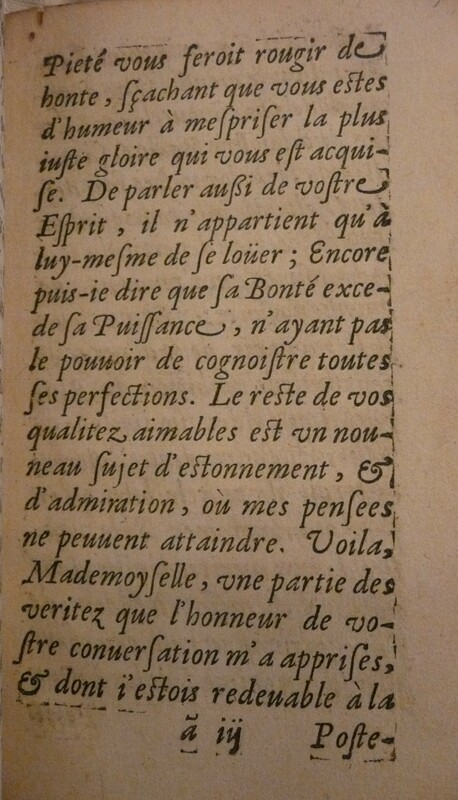 Pieté vous feroit rougir de
honte, sçachant que vous estes
d'humeur à meſpriſer la plus
iuſte gloire qui vous eſt acqui-
ſe. De parler außi de voſtre
Eſprit, il n'appartient qu'à
luy-meſme de ſe loüer; Encore
puis-ie dire que ſa Bonté exce-
de ſa Puiſſance, n'ayant pas
le pouuoir de cognoiſtre toutes
ſes perfections. Le reste de vos
qualitez aimables est vn nou-
neau ſujet d'estonnement, &
d'admiration, où mes penſees
ne peuuent attaindre. Voila,
Mademoyſelle, vne partie des
veritez que l'honneur de vo-
ſtre conuerſation m'a appriſes,
& dont i'estois redeuable à la
ã iij Poſte-